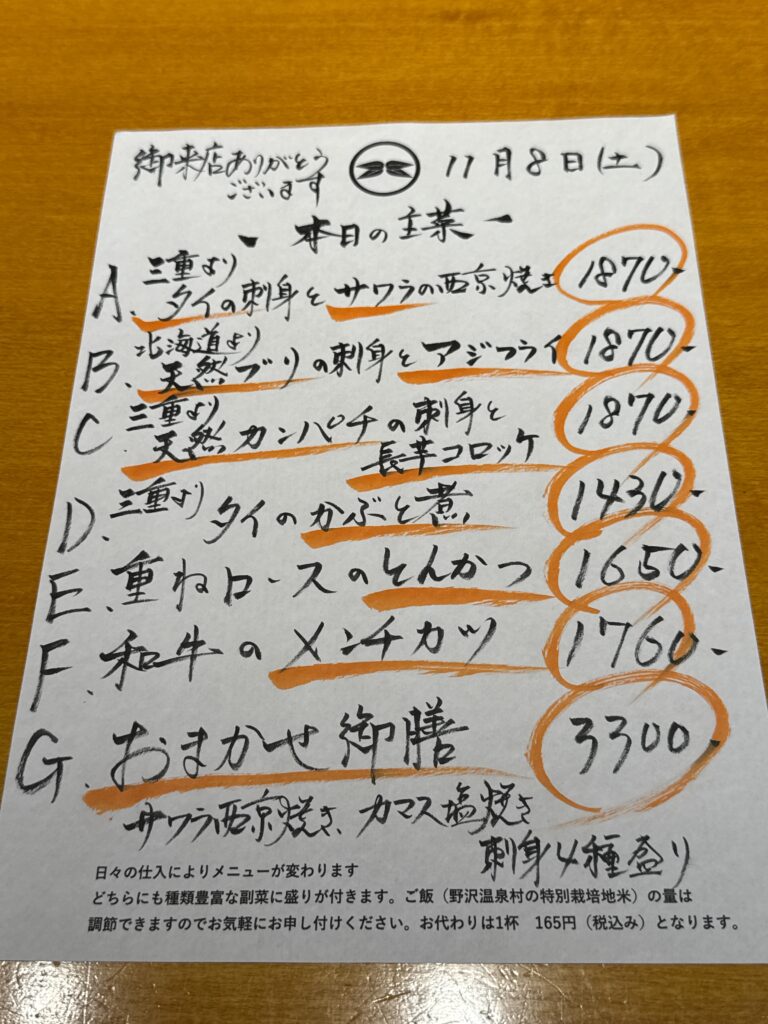 御来店ありがとう
ございます
11月8日(土)
- 本日の主菜 -
A、三重より
タイの刺身とサワラの西京焼き 1870-
B、北海道より
天然ブリの刺身とアジフライ 1870-
C 三重より
天然カンパチの刺身と
長芋コロッケ 1870-
D、三重より タイのかぶと煮 1430-
E、重ねロースのとんかつ 1650-
F、和牛のメンチカツ 1760-
G、おまかせ御膳 3300-
サワラ西京焼き、カマス塩焼き
刺身4種盛り
日々の仕入によりメニューが変わります
どちらにも種類豊富な副菜に盛りが付きます。ご飯（野沢温泉村の特別栽培地米）の量は
調節できますのでお気軽にお申し付けください。お代わりは1杯　165円（税込み）となります。